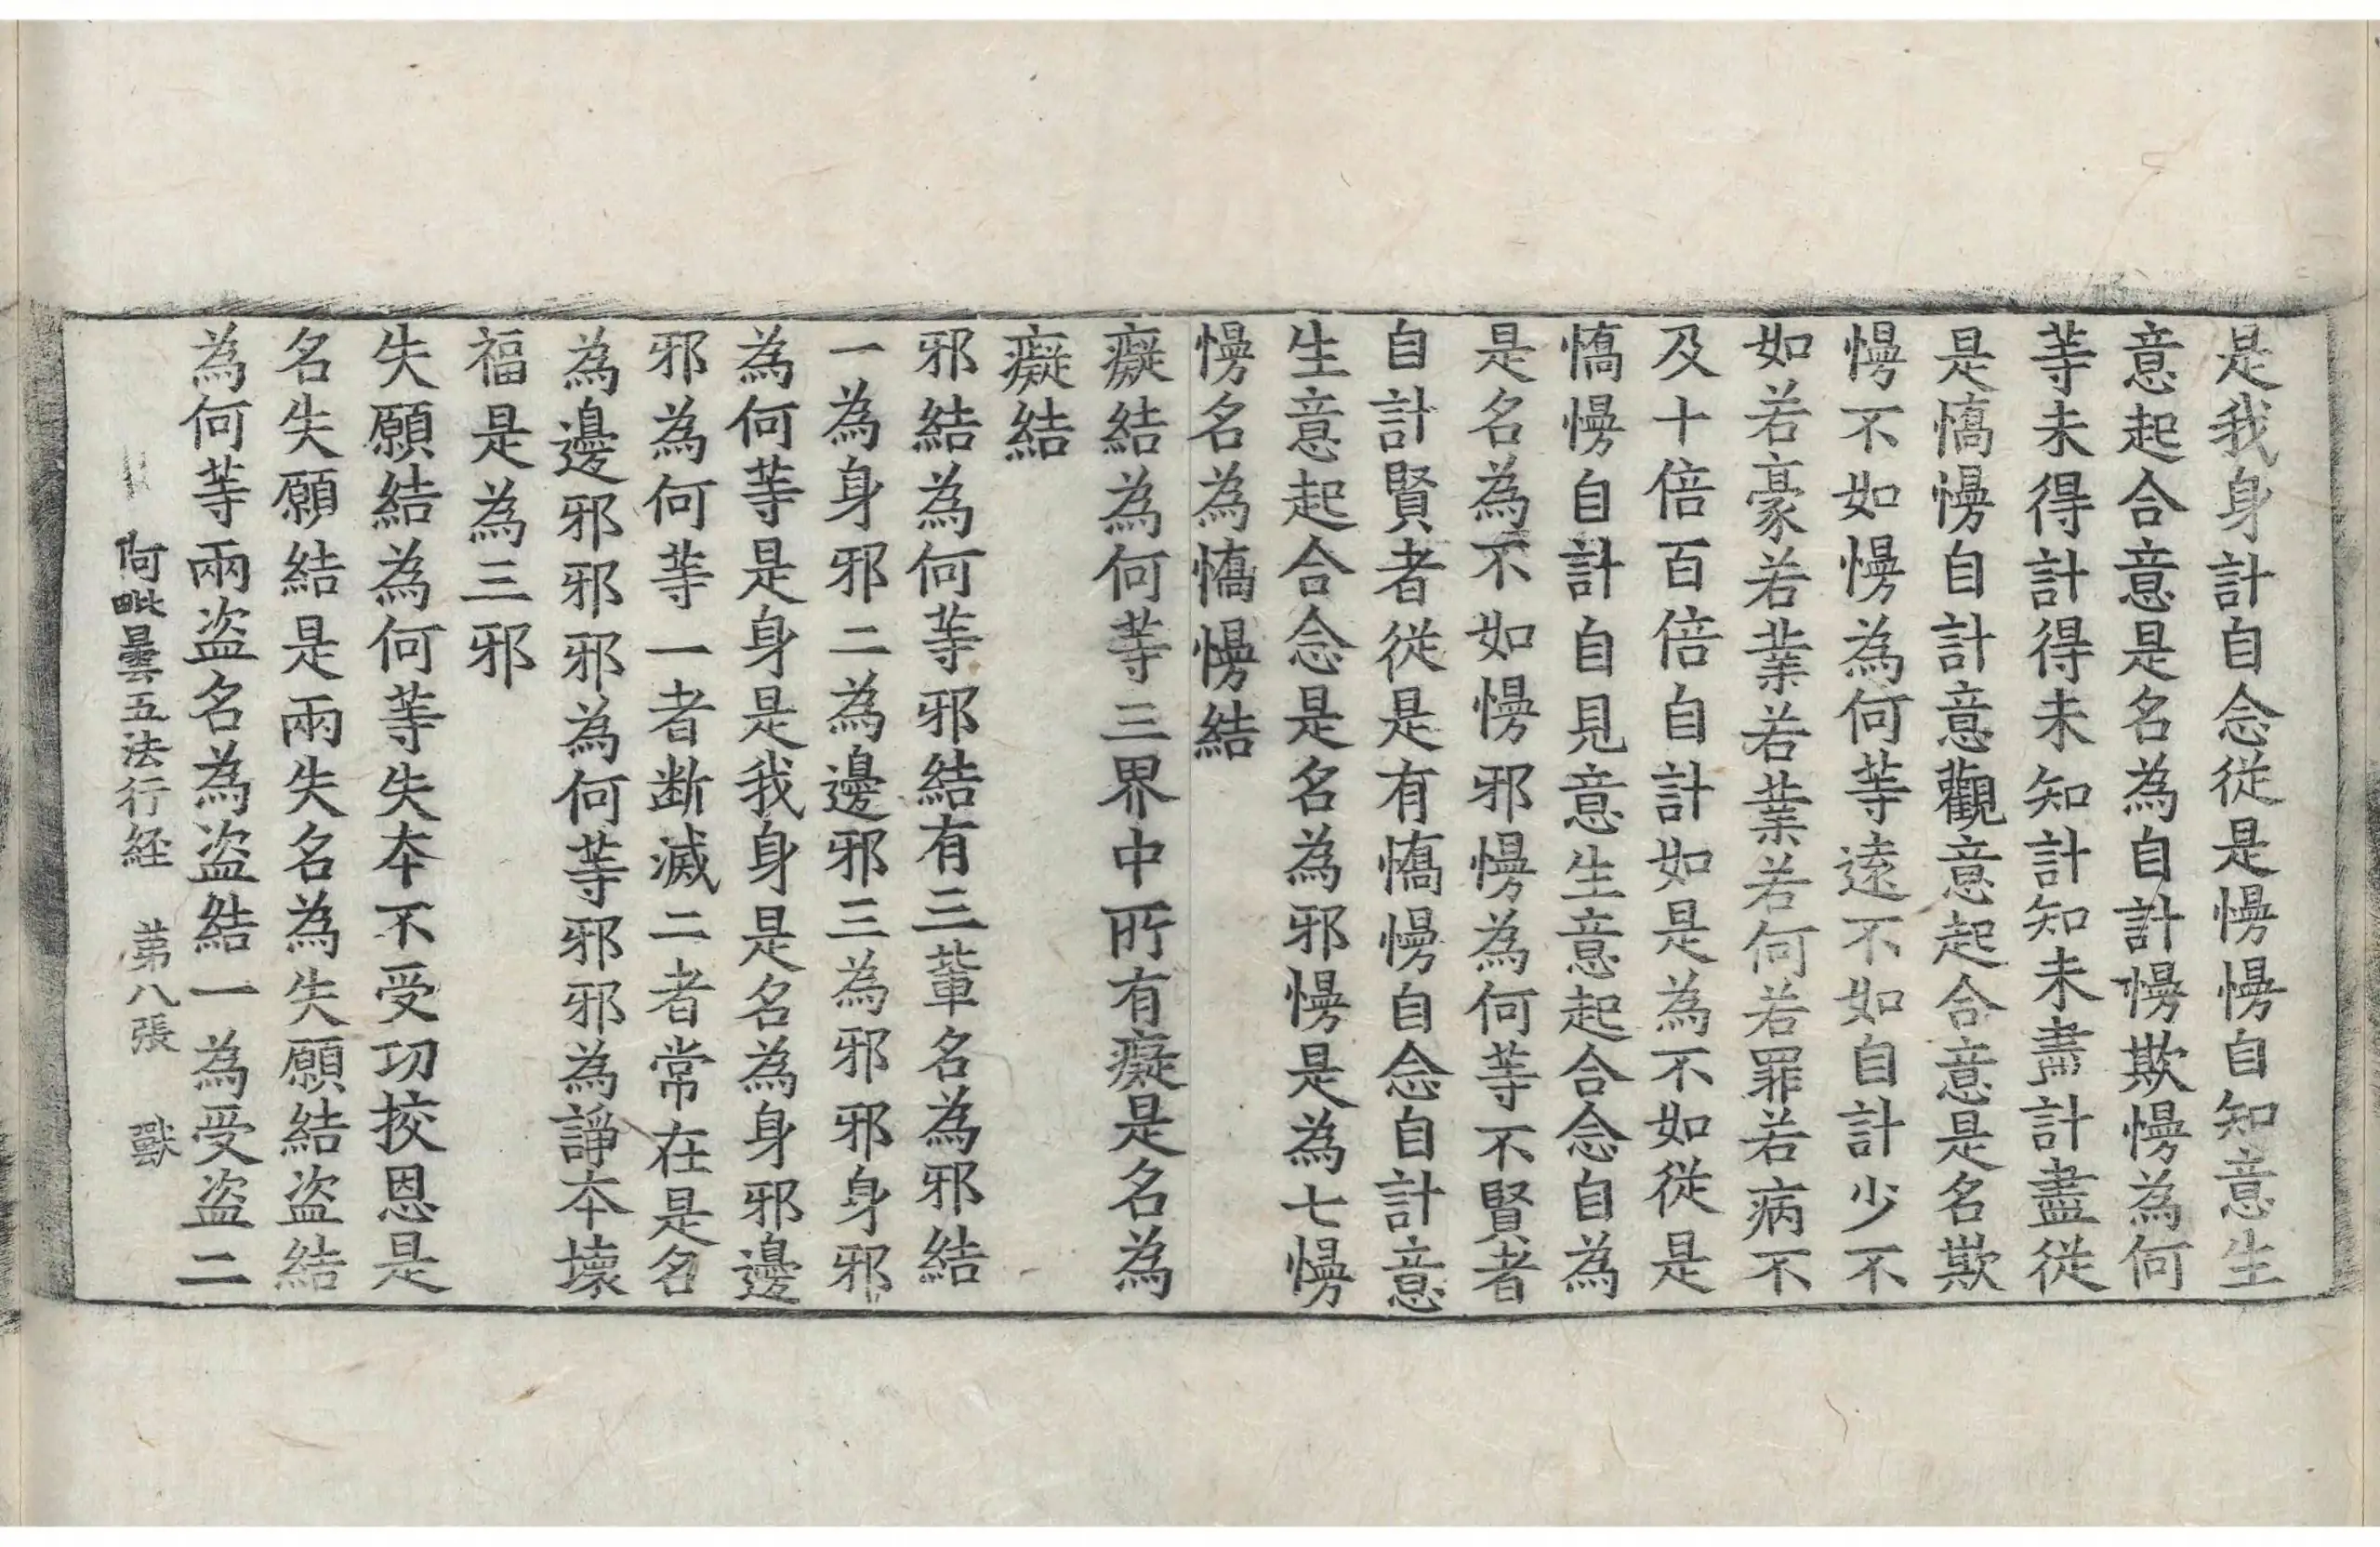 是我身計自念從是慢慢自知意生
意起合意是名為自計慢欺慢為何
等未得計得未知計知未盡計盡從
是憍慢自計意觀意起合意是名欺
慢不如慢為何等遠不如自計少不
如若豪若業若業若何若罪若病不
及十倍百倍自計如是為不如從是
憍慢自計自見意生意起合念自為
是名為不如慢邪慢為何等不賢者
自計賢者從是有憍慢自念自計意
生意起合念是名為邪慢是為七慢
慢名為憍慢結
癡結為何等三界中所有癡是名為
癡結
邪結為何等邪結有三輩名為邪結
一為身邪二為邊邪三為邪邪身邪
為何等是身是我身是名為身邪邊
邪為何等一者斷滅二者常在是名
為邊邪邪邪為何等邪邪為諍本壞
福是為三邪
失願結為何等失本不受功挍恩是
名失願結是兩失名為失願結盜結
為何等兩盜名為盜結一為受盜二
阿毗曇五法行経　第八張　獸